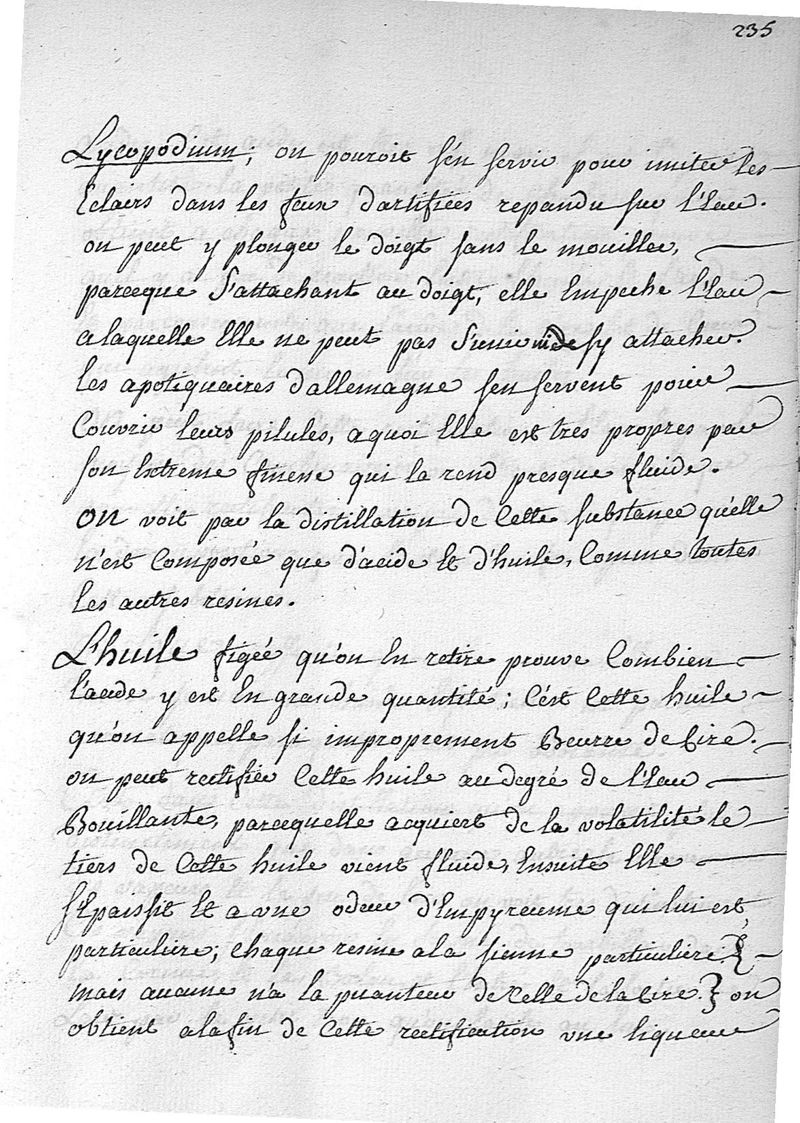 235
Lycopodium; on pouroit s'en servir pour imiter les
Eclairs dans les feux d'artifices repandu sur l'Eau.
on peut y plonger le doigt sans le mouiller,
parceque s'attachant au doigt, elle Empeche l'Eau
a laquelle Elle ne peut pas s'unir de s'y attacher.
les apotiquaires d'allemagne s'en servent pour
Couvrir leurs pilules, a quoi Elle est tres propres par
son Extreme finesse qui la rend presque fluide.
on voit par la distillation de Cette substance qu'elle
n'est Composée que d'acide et d'huile, Comme toutes
les autres resines.
L'huile figeé qu'on En retire prouve Combien
l'acide y est En grande quantité; C'est Cette huile
qu'on appelle si improprement Beurre de Cire.
on peut rectifier Cette huile au degré de l'Eau
Bouillante, parcequelle acquiert de la volatilité le
tiers de Cette huile vient fluide, Ensuite Elle
s'Epaissit Et a une odeur d'Empyreume qui lui est
particuliere; chaque resine a la sienne particuliere
mais aucune n'a la puanteur de Celle de la Cire. on
obtient a la fin de Cette rectification une liqueur